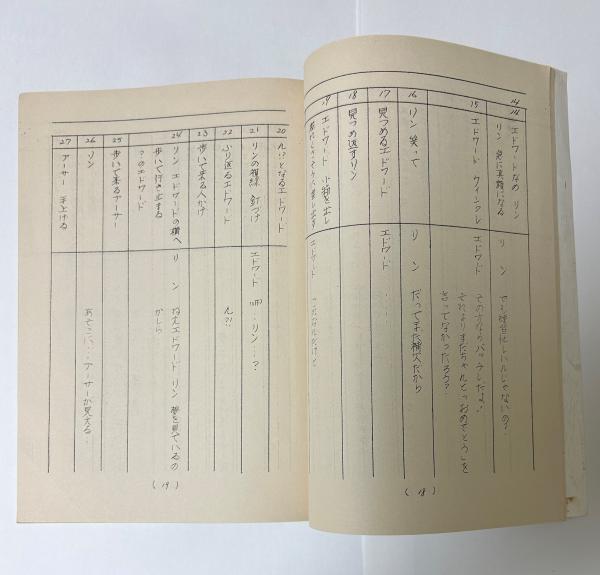 14
エドワードなめ リン
14
リン 急に真顔になる
リン でも神官忙しいんじゃないの?
15
エドワード ウインクし
エドワード その方ならバッチしだよ!
それよりまだちゃんとおめでとうを
言ってなかったろう?
16
リン 笑って
リン だってまだ補欠だから
17
見つめるエドワード
エドワード ・・・・
18
見つめ返すリン
19
エドワード 小箱を出し
エドワード これなんだけど
(18)
20
ん!?となるエドワード
21
リンの視線 釘づけ
エドワード リン・・?
22
ふり返るエドワード
ん?!
23
歩いて来る人かけ
24
リン エドワードの横へ
歩いて行き止まる
?のエドワード
リン ねえエドワード リン 夢を見ているの
かしら
25
歩いて来るアーサー
26
リン
あそこに・・アーサーが見える・・
27
アーサー 手上げる
(19)